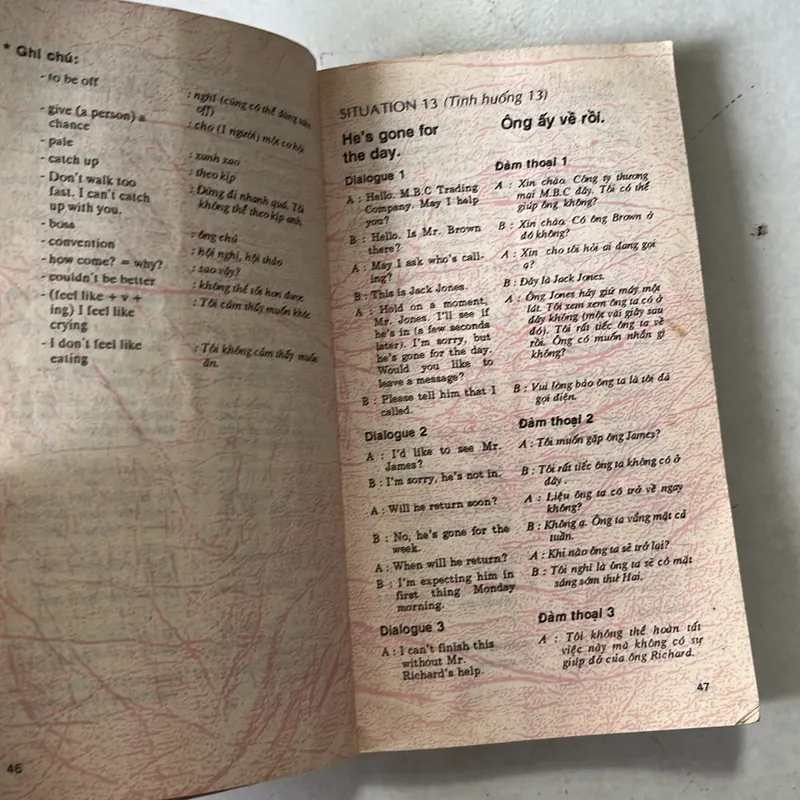 * Ghi chú:
- to be off : nghỉ (cũng có thể dùng
off)
- give (a person) a : cho (1 người) một cơ hội
chance
- pale : xanh xao
- catch up : theo kịp
- Don't walk too : Đừng đi nhanh quá. Tôi
fast. I can't catch không thể theo kịp anh.
up with you.
- boss : ông chủ
- convention : hội nghị, hội thảo
- how come? = why? : sao vậy?
- couldn't be better : không thể tốt hơn được
- (feel like + v + : Tôi cảm thấy muốn khóc
ing) I feel like
crying
- I don't feel like : Tôi không cảm thấy muốn
eating ăn.
46
SITUATION 13 (Tình huống 13)
He's gone for
the day.
Dialogue 1
A : Hello. M.B.C Trading
Company. May I help
you?
B : Hello. Is Mr. Brown
there?
A : May I ask who's call-
ing?
B : This is Jack Jones.
A : Hold on a moment,
Mr. Jones. I'll see if
he's in (a few seconds
later). I'm sorry, but
he's gone for the day.
Would you like to
leave a message?
B : Please tell him that I
called.
Dialogue 2
A : I'd like to see Mr.
James?
B : I'm sorry, he's not in.
A : Will he return soon?
B : No, he's gone for the
week.
A : When will he return?
B : I'm expecting him in
first thing Monday
morning.
Dialogue 3
A : I can't finish this
without Mr.
Richard's help.
Ông ấy về rồi.
Đàm thoại 1
A : Xin chào. Công ty thương
mại M.B.C đây. Tôi có thể
giúp ông không?
B : Xin chào. Có ông Brown ở
đó không?
A : Xin cho tôi hỏi ai đang gọi
ạ?
B : Đây là Jack Jones.
A : Ông Jones hãy giữ máy một
lát. Tôi xem xem ông ta có ở
đây không (một vài giây sau
đó). Tôi rất tiếc ông ta về
rồi. Ông có muốn nhắn gì
không?
B : Vui lòng bảo ông ta là tôi đã
gọi điện.
Đàm thoại 2
A : Tôi muốn gặp ông James?
B : Tôi rất tiếc ông ta không có ở
đây .
A : Liệu ông ta có trở về ngay
không?
B : Không ạ. Ông ta vắng mặt cả
tuần.
A : Khi nào ông ta sẽ trở lại?
B : Tôi nghĩ là ông ta sẽ có mặt
sáng sớm thứ Hai.
Đàm thoại 3
A : Tôi không thể hoàn tất
việc này mà không có sự
giúp đỡ của ông Richard.
47